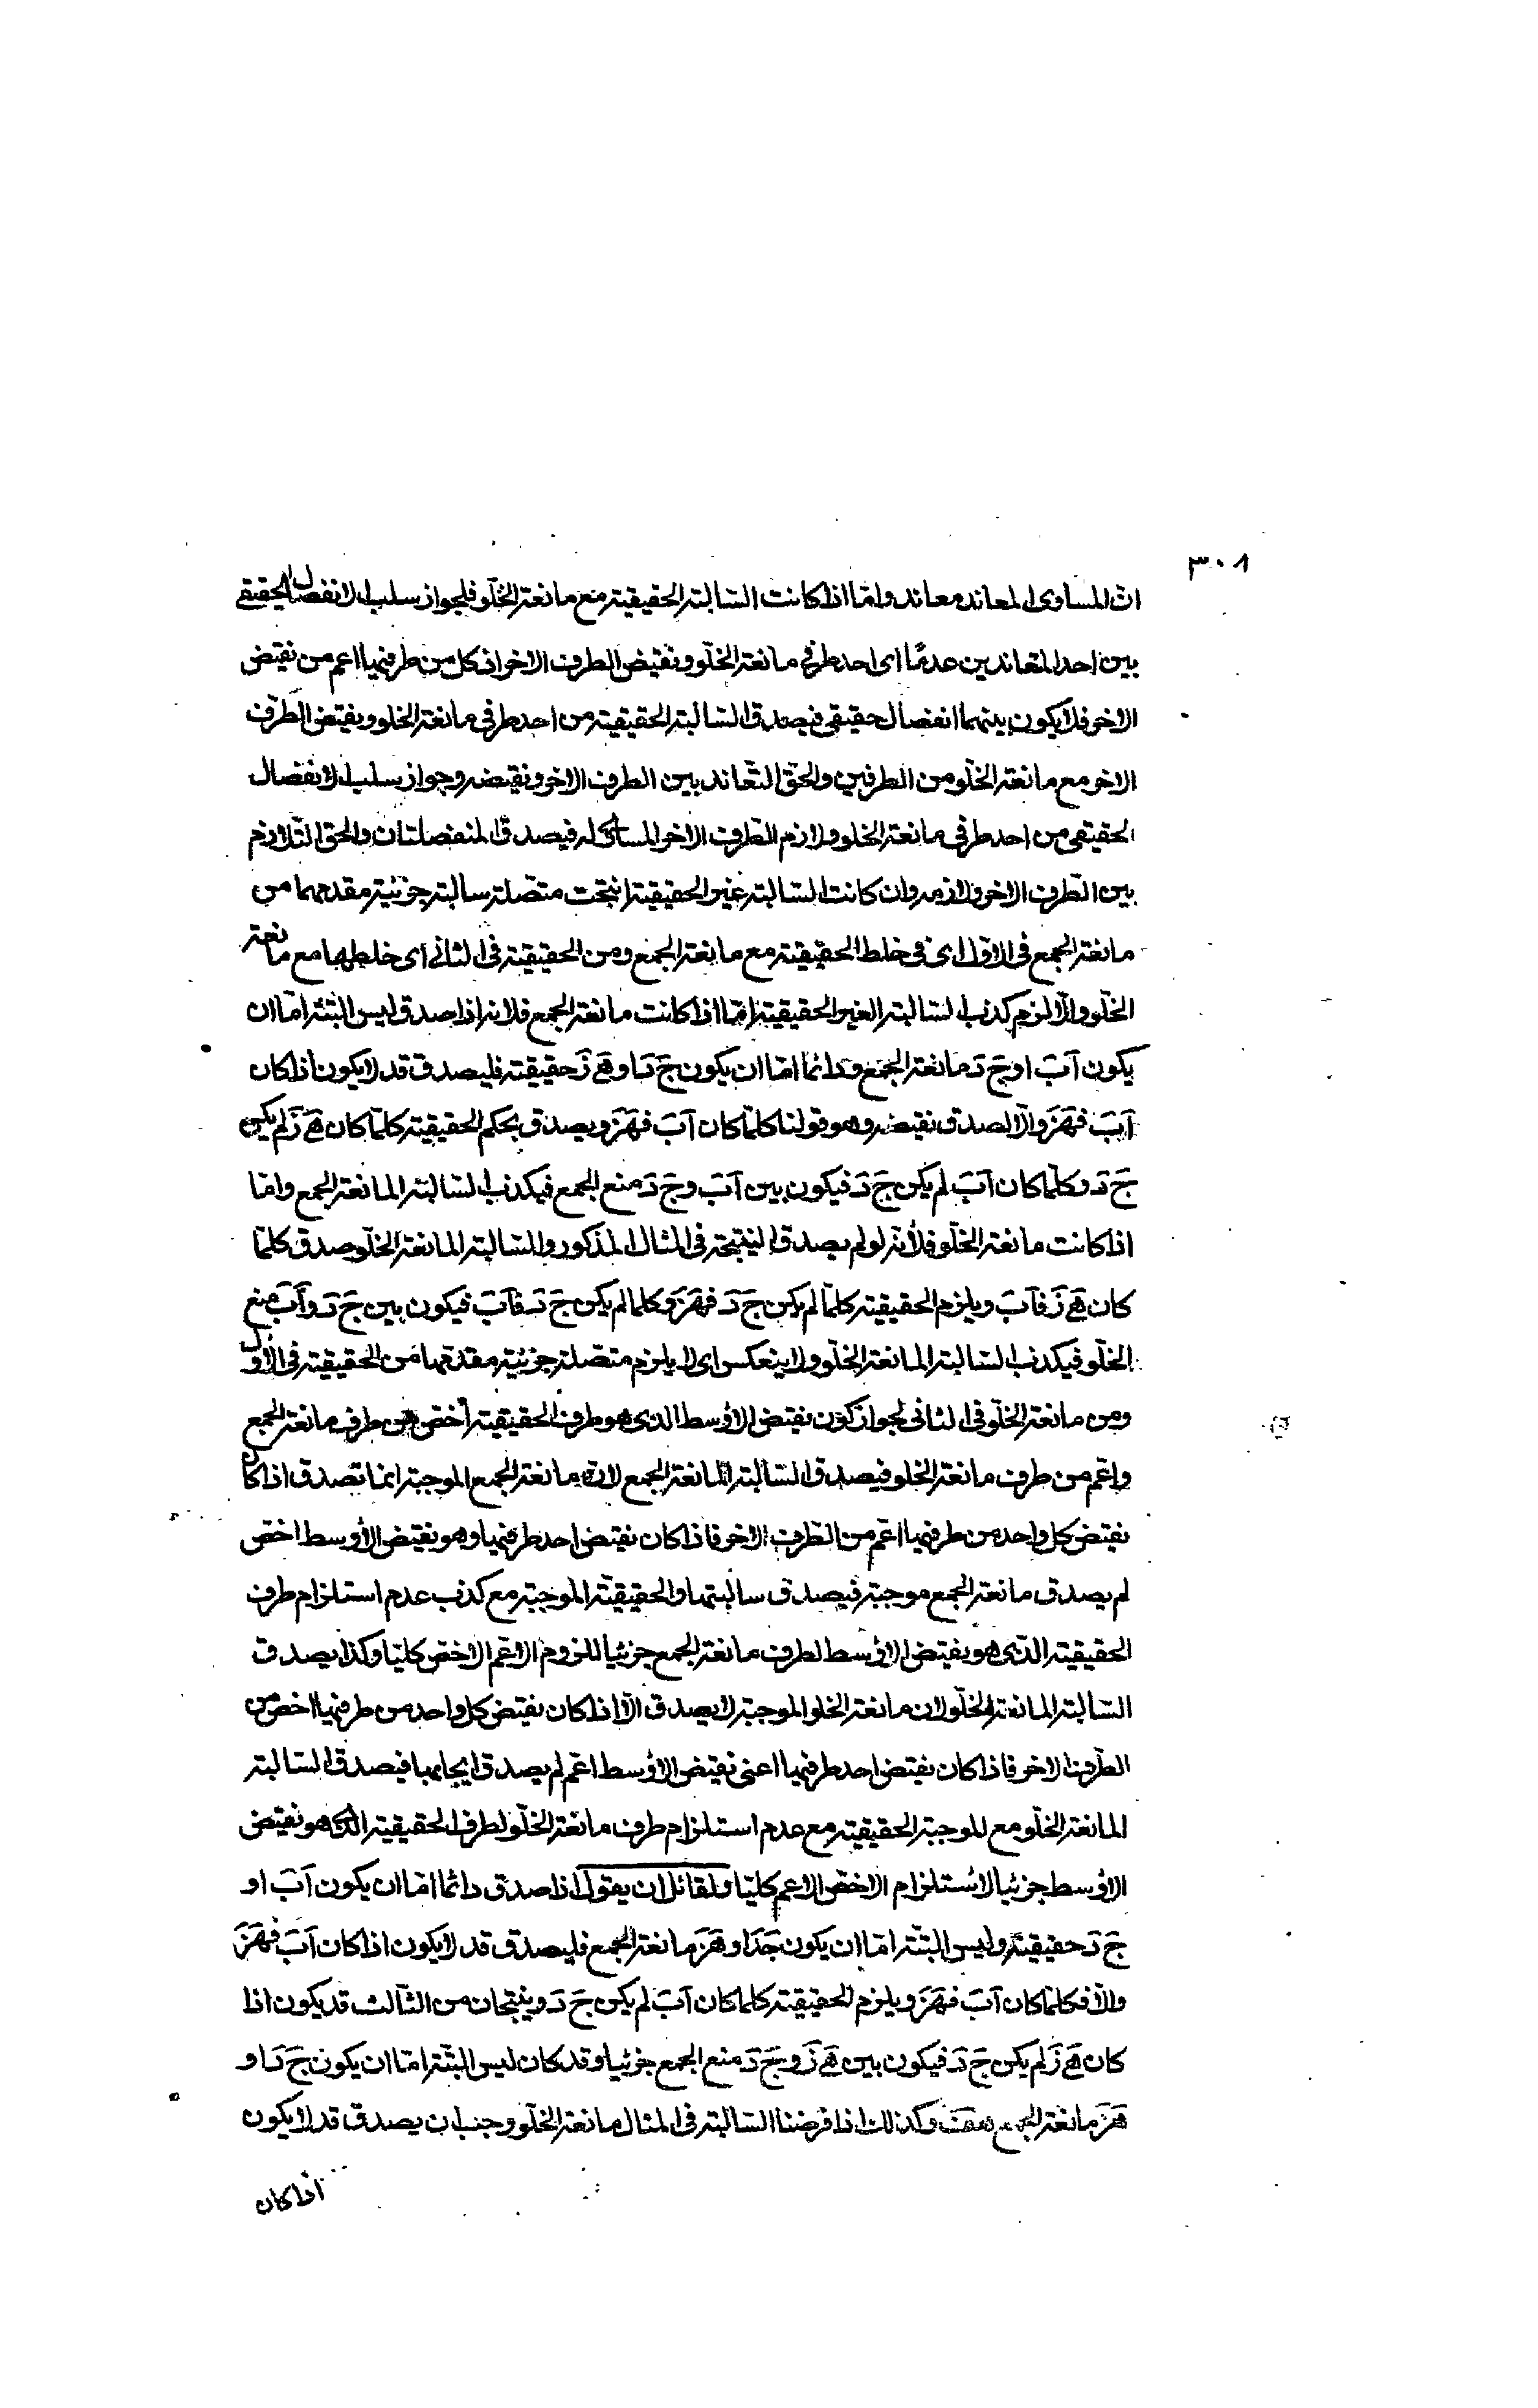 ٣٠٨
ان المساوى المعاند معاند واما اذا كانت السّالبة الحقيقية مع مانعة الخلّو فلجواز سلب الانفصال الحقيقى
بين احد المتعاندين عدمًا اى احد طرفى مانعة الخلّو ونقيض الطرف الاخر اذ كل من طرفيها اعم من نقيض
الاخر فلا يكون بينهما انفصال حقيقى فيصدق السّالبة الحقيقية من احد طرفى مانعة الخلو ونقيض الطّرف
الاخر مع مانعة الخلّو من الطرفين والحق التّعاند بين الطرف الاخر ونقيضه وجواز سلب الانفصال
الحقيقى من احد طرفى مانعة الخلو ولازم الطرف الاخر المساوى له فيصدق المنفصلتان والحق التّلازم
بين الطّرف الاخر ولازمه وان كانت السّالبة غير الحقيقية انتجت متصّلة سالبة جزئية مقدمها من
مانعة الجمع فى الاوّل اى فى خلط الحقيقية مع مانعة الجمع ومن الحقيقية فى الثانى اى خلطها مع مانعة
الخلّو والّا لزم كذب السّالبة الغير الحقيقية امّا اذا كانت مانعة الجمع فلانه اذا صدق ليس البتّة امّا ان
يكون آب او ج د مانعة الجمع ودائما امّا ان يكون ج د او ه ز حقيقية فليصدق قد لا يكون اذا كان
آب فهز والّا لصدق نقيضه وهو قولنا كلّما كان آب فهز ويصدق بحكم الحقيقية كلّما كان ه ز لم يكن
ج د وكلّما كان آب لم يكن ج د فيكون بين آب وج د منع الجمع فيكذب السّالبة المانعة الجمع وامّا
اذا كانت مانعة الخلّو فلأنه لو لم يصدق النتيجة فى المثال المذكور والسّالبة المانعة الخلّو صدق كلّما
كان ه ز فآب ويلزم الحقيقية كلّما لم يكن ج د فهز وكلما لم يكن ج د فآب فيكون بين ج د وآب منع
الخلّو فيكذب السّالبة المانعة الخلّو ولا ينعكس اى لا يلزم متصّلة جزئية مقدّمها من الحقيقية فى الاوّل
ومن مانعة الخلّو فى الثانى لجواز كون نقيض الاوسط الذى هو طرف الحقيقية أخصّ من طرف مانعة الجمع
واعّم من طرف مانعة الخلو فيصدق السّالبة المانعة الجمع لانّ مانعة الجمع الموجبة انما تصدق اذا كان
نقيض كل واحد من طرفيها اعّم من الطّرف الاخر فاذا كان نقيض احد طرفيها وهو نقيض الأوسط اخصّ
لم يصدق مانعة الجمع موجبة فيصدق سالبتها والحقيقيّة الموجبة مع كذب عدم استلزام طرف
الحقيقية الذّى هو نقيض الاوسط لطرف مانعة الجمع جزئيا للزوم الاعّم الاخصّ كليّا وكذا يصدق
السّالبة المانعة الخلّو لان مانعة الخلو الموجبة لا يصدق الّا اذا كان نقيض كل واحد من طرفيها اخصّ من
الطّرف الاخر فاذا كان نقيض احد طرفيها اعنى نقيض الاوسط اعّم لم يصدق ايجابها فيصدق السّالبة
المانعة الخلّو مع الموجبة الحقيقية مع عدم استلزام طرف مانعة الخلّو لطرف الحقيقية الذى هو نقيض
الاوسط جزئيا لاستلزام الاخصّ الاعم كليّا ولقائل ان يقول اذا صدق دائما امّا ان يكون آب او
ج د حقيقيّة وليس البتّة امّا ان يكون جد او هز مانعة الجمع فليصدق قد لا يكون اذا كان آب فهز
والّا فكلّما كان آب فهز ويلزم الحقيقية كلّما كان آب لم يكن ج د وينتجان من الثّالث قد يكون اذا
كان ه ز لم يكن ج د فيكون بين ه ز وج د منع الجمع جزئيا وقد كان ليس البتّة امّا ان يكون ج د او
هز مانعة الجمع هف وكذلك اذا فرضنا السّالبة فى المثال مانعة الخلّو وجب ان يصدق قد لا يكون
اذا كان